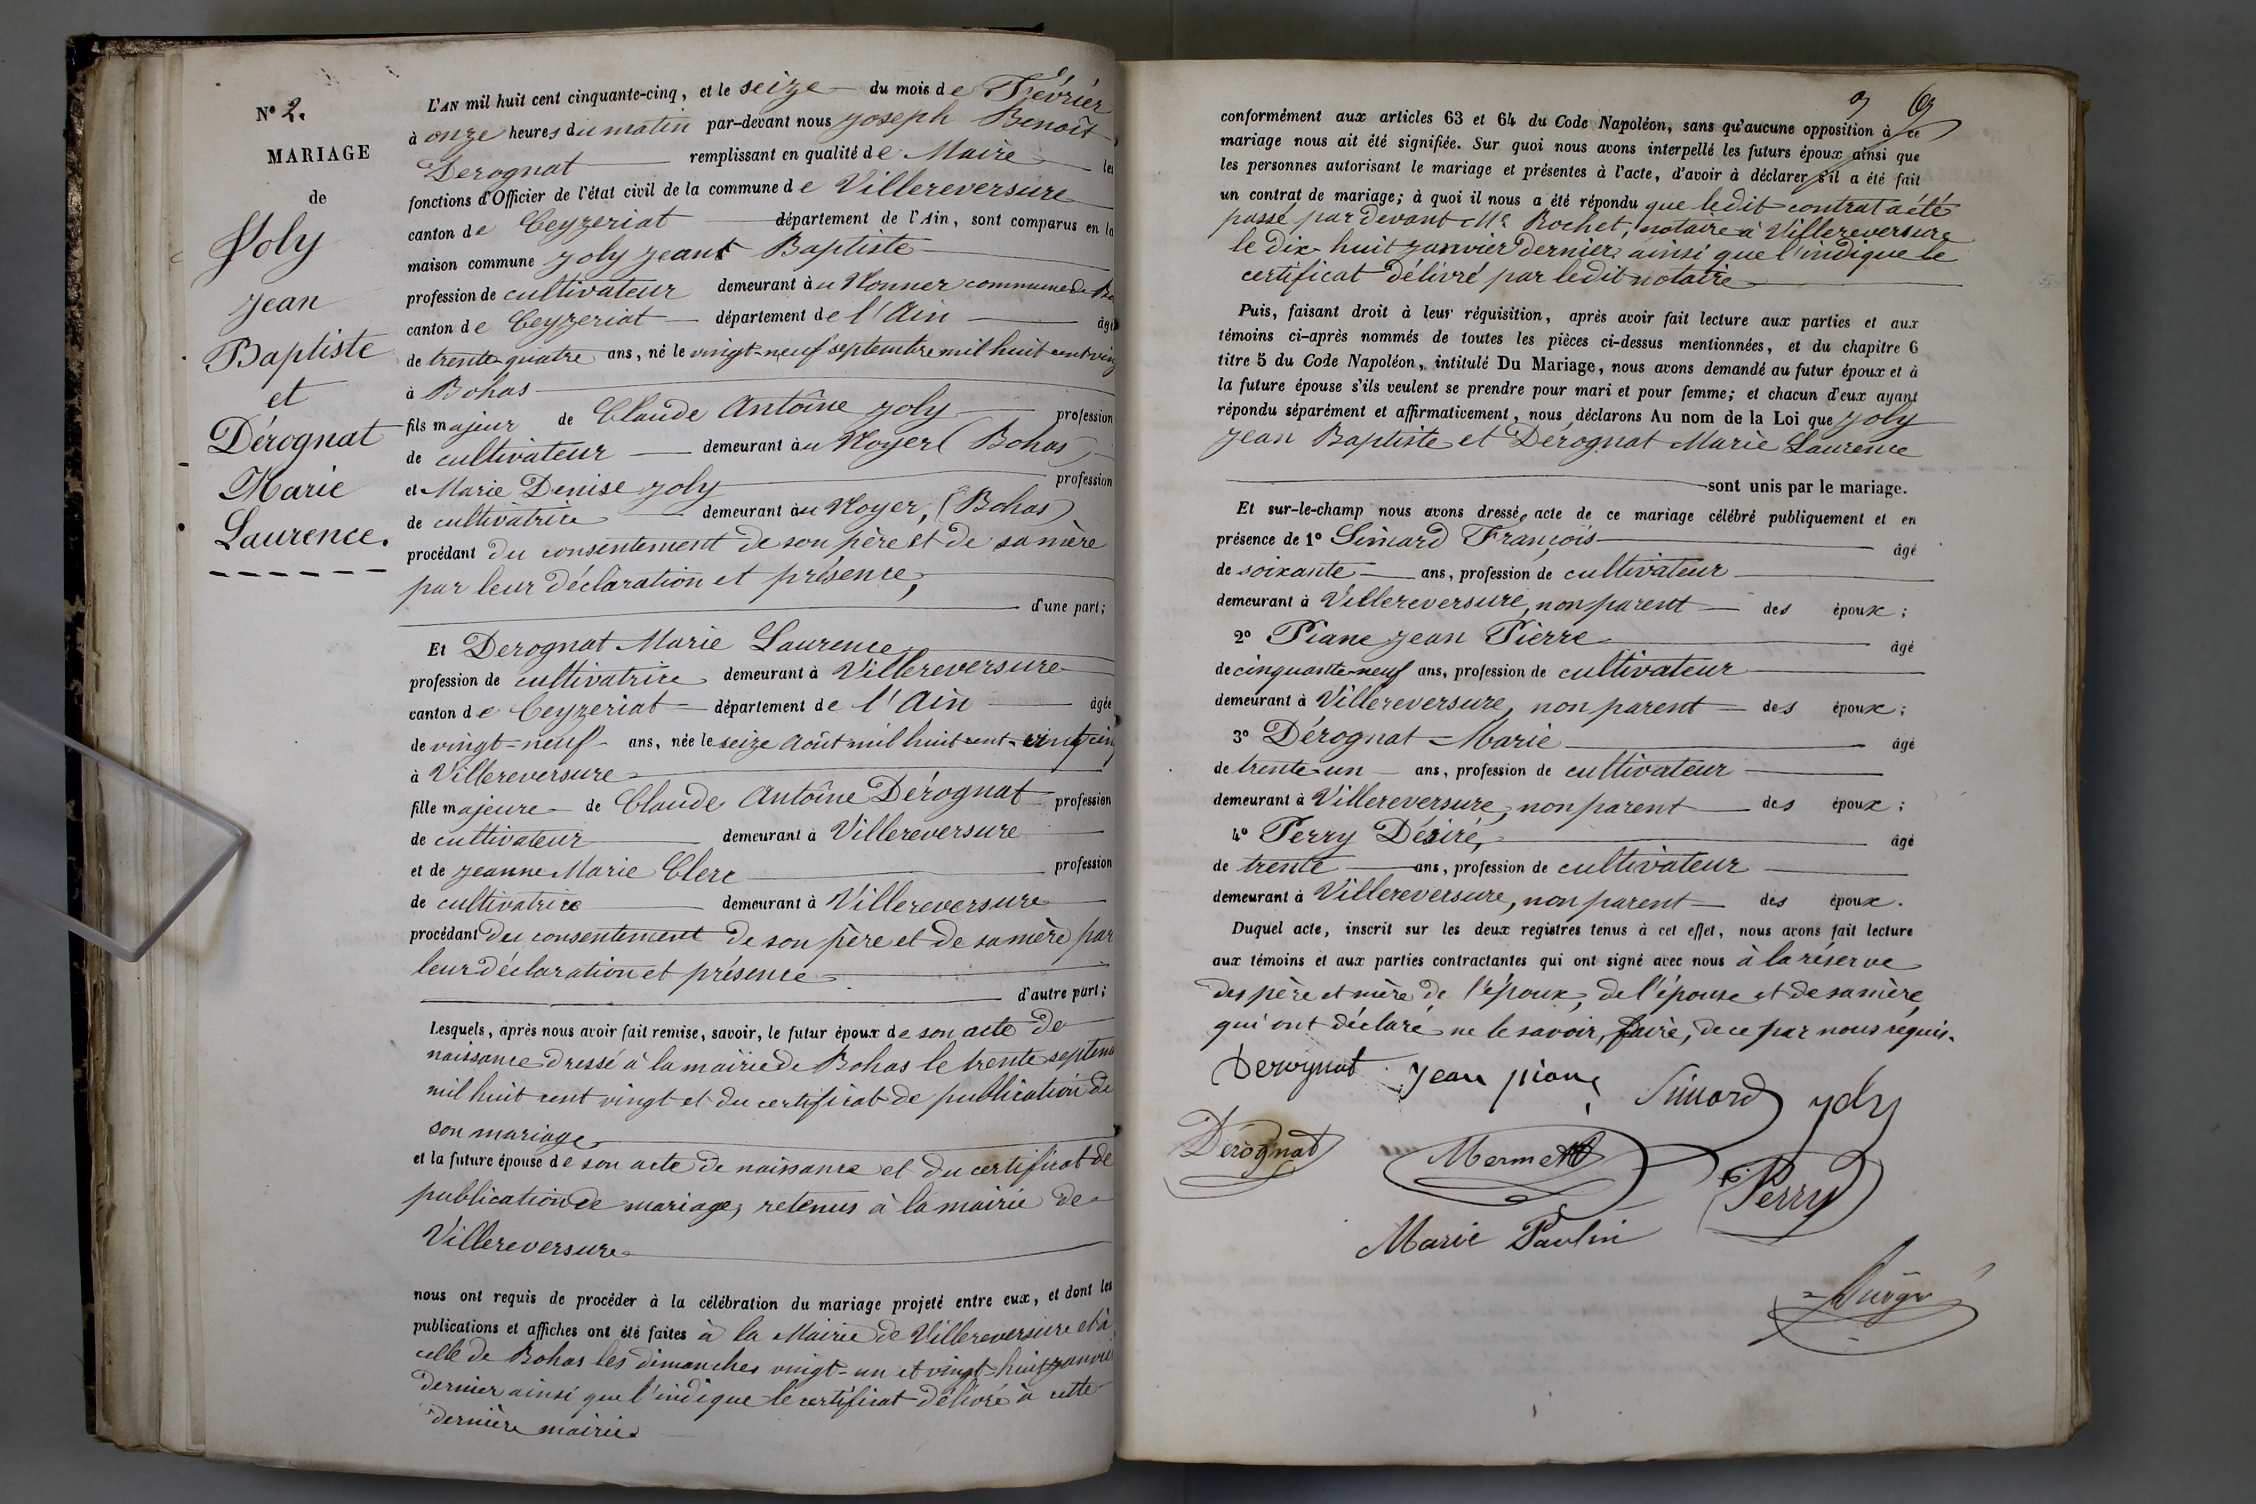 N° 2.
MARIAGE
de
Joly
Jean
Baptiste
et
Dérognat
Marie
Laurence.
L'AN mil huit cent cinquante-cinq, et le seize du mois de Février
à onze heures du matin par-devant nous Joseph Benoît
Derognat remplissant en qualité de Maire les
fonctions d'Officier de l'état civil de la commune de Villereversure
canton de Ceyzeriat département de l'Ain, sont comparus en la
maison commune Joly Jean Baptiste
profession de cultivateur demeurant à commune de
canton de Ceyzeriat département de l'Ain âgé
de trente-quatre ans, né le vingt-neuf septembre mil huit cent vingt
à Bohas
fils majeur de Claude Antoine Joly profession
de cultivateur demeurant au Noyer (Bohas)
et Marie Denise Joly profession
de cultivatrice demeurant au Noyer, (Bohas)
procédant du consentement de son père et de sa mère
par leur déclaration et présence,
d'une part;
Et Derognat Marie Laurence
profession de cultivatrice demeurant à Villereversure
canton de Ceyzeriat département de l'Ain âgée
de vingt-neuf ans, née le seize Août mil huit cent vingt cinq
à Villereversure
fille majeure de Claude Antoine Dérognat profession
de cultivateur demeurant à Villereversure
et de Jeanne Marie Clerc profession
de cultivatrice demeurant à Villereversure
procédant du consentement de son père et de sa mère par
leur déclaration et présence
d'autre part;
Lesquels, après nous avoir fait remise, savoir, le futur époux de son acte de
naissance dressé à la mairie de Bohas le trente septem
mil huit cent vingt et du certificat de publication de
son mariage
et la future épouse de son acte de naissance et du certificat de
publication de mariage, retenus à la mairie de
Villereversure
nous ont requis de procéder à la célébration du mariage projeté entre eux, et dont les
publications et affiches ont été faites à la Mairie de Villereversure et à
celle de Bohas les dimanches vingt-un et vingt-huit janvier
dernier ainsi que l'indique le certificat délivré à cette
dernière mairie.
conformément aux articles 63 et 64 du Code Napoléon, sans qu'aucune opposition à ce
mariage nous ait été signifiée. Sur quoi nous avons interpellé les futurs époux ainsi que
les personnes autorisant le mariage et présentes à l'acte, d'avoir à déclarer s'il a été fait
un contrat de mariage; à quoi il nous a été répondu que ledit contrat a été
passé par devant Me Rochet, notaire à Villereversure
le dix huit janvier dernier ainsi que l'indique le
certificat délivré par ledit notaire
Puis, faisant droit à leur réquisition, après avoir fait lecture aux parties et aux
témoins ci-après nommés de toutes les pièces ci-dessus mentionnées, et du chapitre 6
titre 5 du Code Napoléon, intitulé Du Mariage, nous avons demandé au futur époux et à
la future épouse s'ils veulent se prendre pour mari et pour femme; et chacun d'eux ayant
répondu séparément et affirmativement, nous déclarons Au nom de la Loi que Joly
Jean Baptiste et Dérognat Marie Laurence
sont unis par le mariage.
Et sur-le-champ nous avons dressé acte de ce mariage célébré publiquement et en
présence de 1° Simard François âgé
de soixante ans, profession de cultivateur
demeurant à Villereversure, non parent des époux;
2° Piane Jean Pierre âgé
de cinquante-neuf ans, profession de cultivateur
demeurant à Villereversure, non parent des époux;
3° Dérognat Marie âgé
de trente-un ans, profession de cultivateur
demeurant à Villereversure, non parent des époux;
4° Perry Désiré, âgé
de trente ans, profession de cultivateur
demeurant à Villereversure, non parent des époux.
Duquel acte, inscrit sur les deux registres tenus à cet effet, nous avons fait lecture
aux témoins et aux parties contractantes qui ont signé avec nous à la réserve
des père et mère de l'époux, de l'épouse et de sa mère
qui ont déclaré ne le savoir faire, de ce par nous requis.
Derognat Jean piane Simard Joly
Dérognat Mermet Perry
Marie Paulin